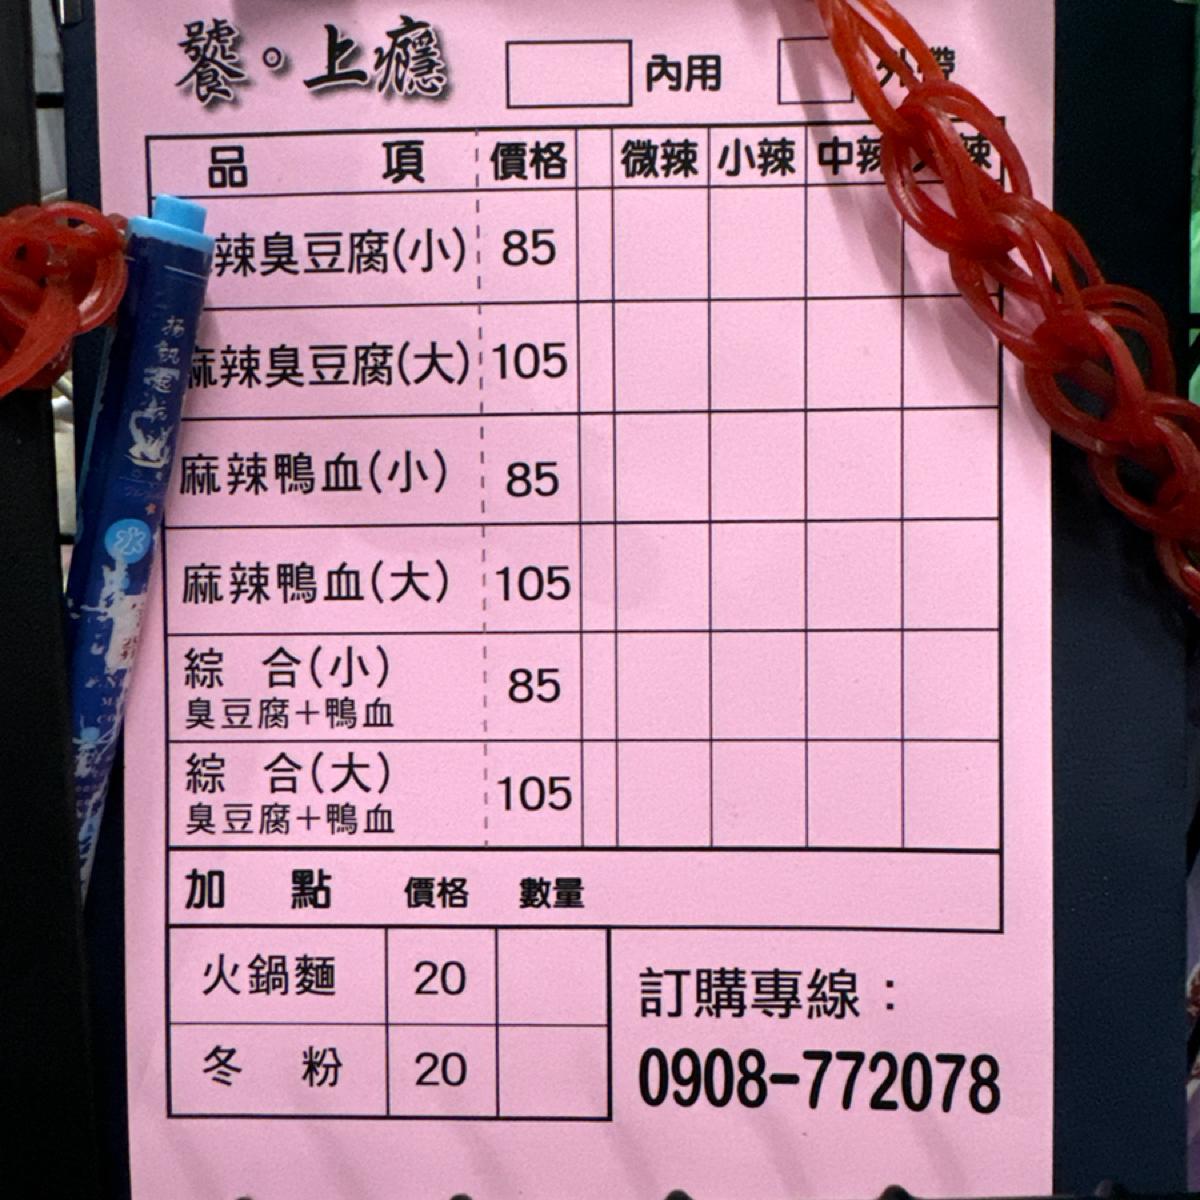 饕。上癮
內用 外帶
品項 價格 微辣 小辣 中辣 辣
辣臭豆腐(小) 85
麻辣臭豆腐(大) 105
麻辣鴨血(小) 85
麻辣鴨血(大) 105
綜合(小) 85
臭豆腐+鴨血
綜合(大) 105
臭豆腐+鴨血
加點 價格 數量
火鍋麵 20
冬粉 20
訂購專線：
0908-772078
水